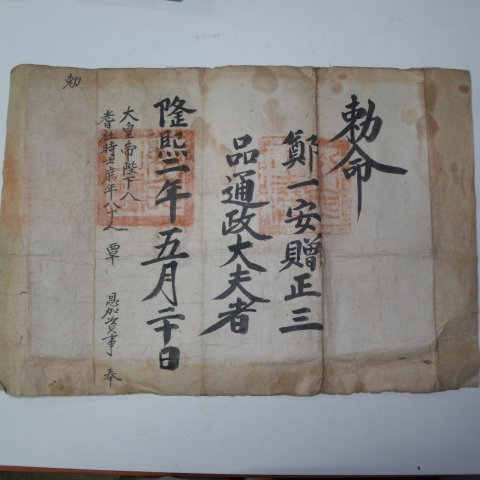 勅命
鄭一安贈正三
品通政大夫者
隆熙二年五月二十日
大皇帝陛下入
耆社時士庶年八十人 覃 恩加資事 奉
勅